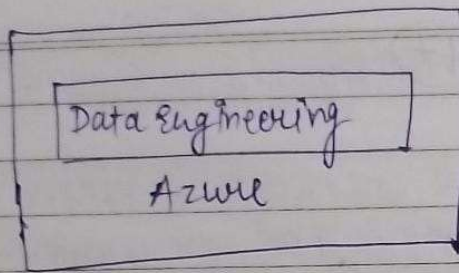 Data Engineering
Azure